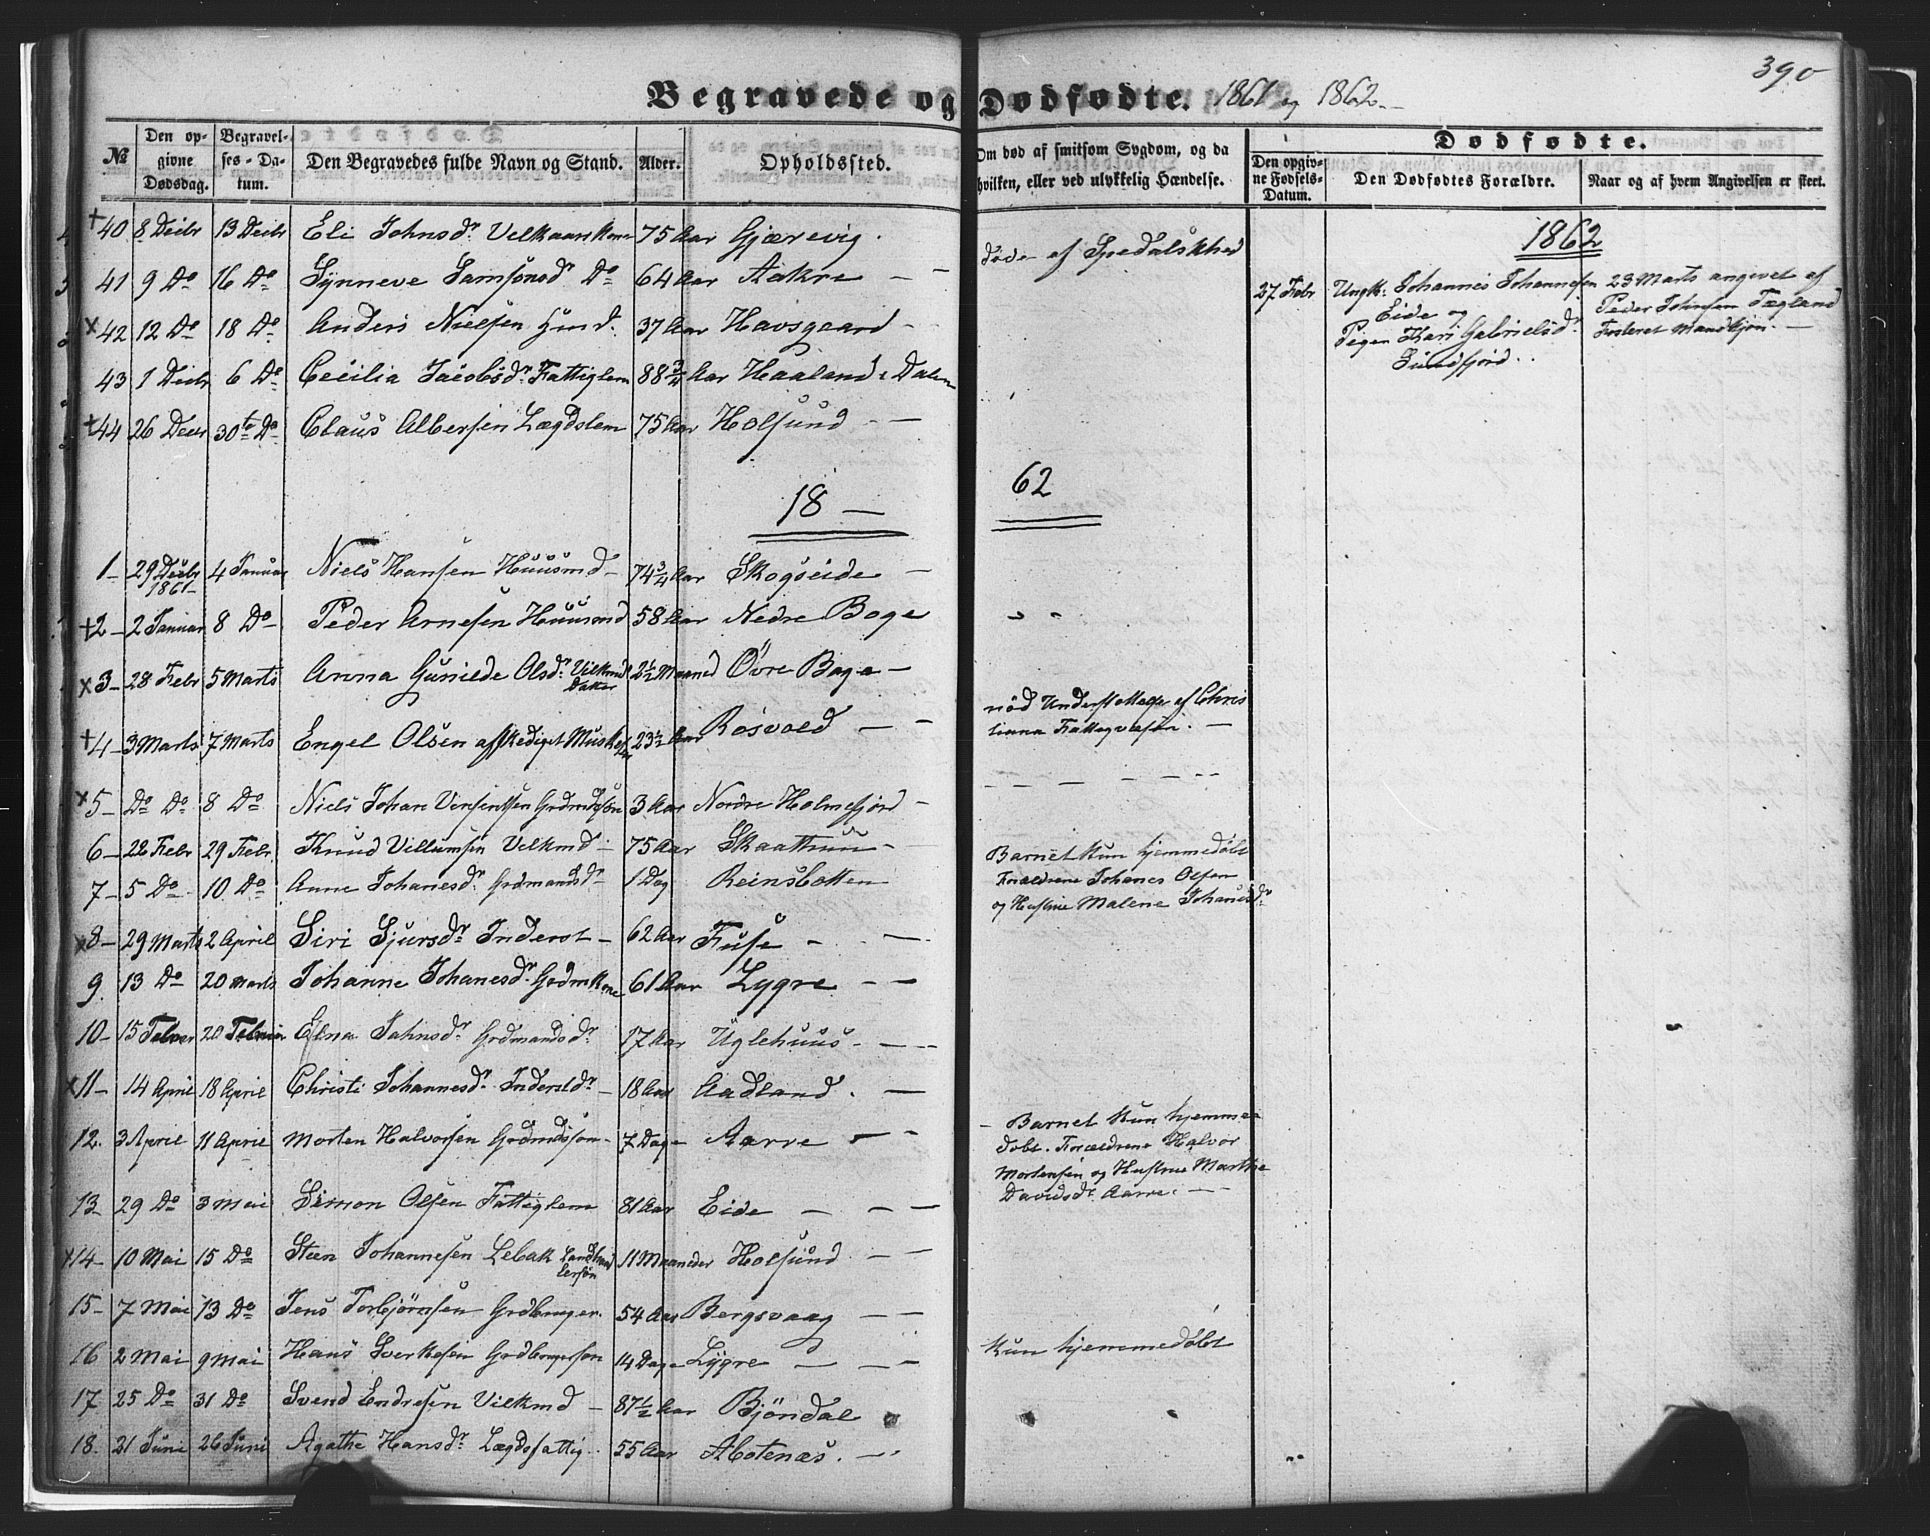 390
Begravede og Dødfødte. 1861 og 1862.
Dødfødte.
№ | Den opgivne Dødsdag. | Begravelses-Datum. | Den Begravedes fulde Navn og Stand. | Alder. | Opholdssted. | Om død af smitsom Sygdom, og da hvilken, eller ved ulykkelig Hændelse. | Den opgivne Fødsels-Datum. | Den Dødfødtes Forældre. | Naar og af hvem Angivelsen er skeet.
+ 40 8 Decbr 13 Decbr Eli Johnsdr Velkaarskone 75 Aar Gjærevig. døde af Spedalskhed
41 9 Do 16 Do Synneve Samsonsdr Do 64 Aar Aakre — —
x 42 12 Do 18 Do Anders Nielsen Gmd. 37 Aar Havsgaard -
43 1 Decbr 6 Do Cecilia Jacobsdr Fattiglem 88 3/4 Aar Haaland i Dalen
+ 44 26 Decbr 30te Do Claus Albersen Lægdslem 75 Aar Holsund — —
1862
27 Febr Ungk: Johannes Johannesen 23 Marts angevet af
Eide og Peder Johnsen Tægland
Pigen Kari Gabrielsdr Fosteret Mandkjön. —
Sundfjord.
18 — 62
1 - 29 Decbr 1861 4 Januar Niels Hansen Huusmd - 74 3/4 Aar Skogseide —
+ 2 - 2 Januar 8 Do Peder Arnesen Huusmd 58 Aar Nedre Boge
x 3 - 28 Febr 5 Marts Anna Gunilde Olsdr Vilkmd Datter 2 1/2 Maaned Övre Boge —
+ 4 - 3 Marts 7 Marts Engel Olsen afskediget 23 1/2 Aar Rosvold — — nöd Understöttelse af Chris
tiania Fattigvæsen. —
x 5 - Do Do 8 Do Niels Johan Vinsentsen Grdmdssön 3 Aar Nordre Holmefjord —
6 - 22 Febr 29 Febr Knud Villumsen Velkmd - 75 Aar Skaathun -
7 - 5 Do 10 Do Anne Johanesdr Grdmandsdr 1 Dag Reinsbotten
Barnet kun hjemmedöbt
Forældrene Johanes Olsen
og Hustrue Malene Johanesdr
x 8 - 29 Marts 2 April Siri Sjursdr Inderst - 62 Aar Fuse - —
9. 13 Do 20 Marts Johanne Johanesdr Grdmkone 61 Aar Lygre — —
10 - 15 Febr 20 Elna Jahnsdr Grdmandsdr 17 Aar Uglehuus - —
x 11 - 14 April 18 April Christi Johannesdr Inderstdr - 18 Aar Aadland. —
12. 3 April 11 April Morten Halvorsen Grdmdssön - 7 Dage Aarre — —
- Barnet kun hjemme-
döbt. Forældrene Halvor
Mortensen og Hustrue Marthe
Davidsdr Aarre. —
13 - 29 Do 3 Mai Simon Olsen Fattiglem 81 Aar Eide — — —
x 14 - 10 Mai 15 Do Steen Johannesen Lebak Landhand lersön 11 Maaneder Holsund — —
15 - 7 Mai 13 Do Jens Torbjörnsen Grdbruger 54 Aar Bergsvaag — —
16 2 Mai 9 Mai Hans Sverkesen Grdbrugersön 14 Dage Lygre — — — Kun hjemmedöbt
17 25 Do 31 Do Svend Endresen Vilkmd — 87 1/2 Aar Bjöndal
18. 21 Juni 26 Juni Agathe Hansdr Lægdsfattig. 55 Aar Abotenæs. —